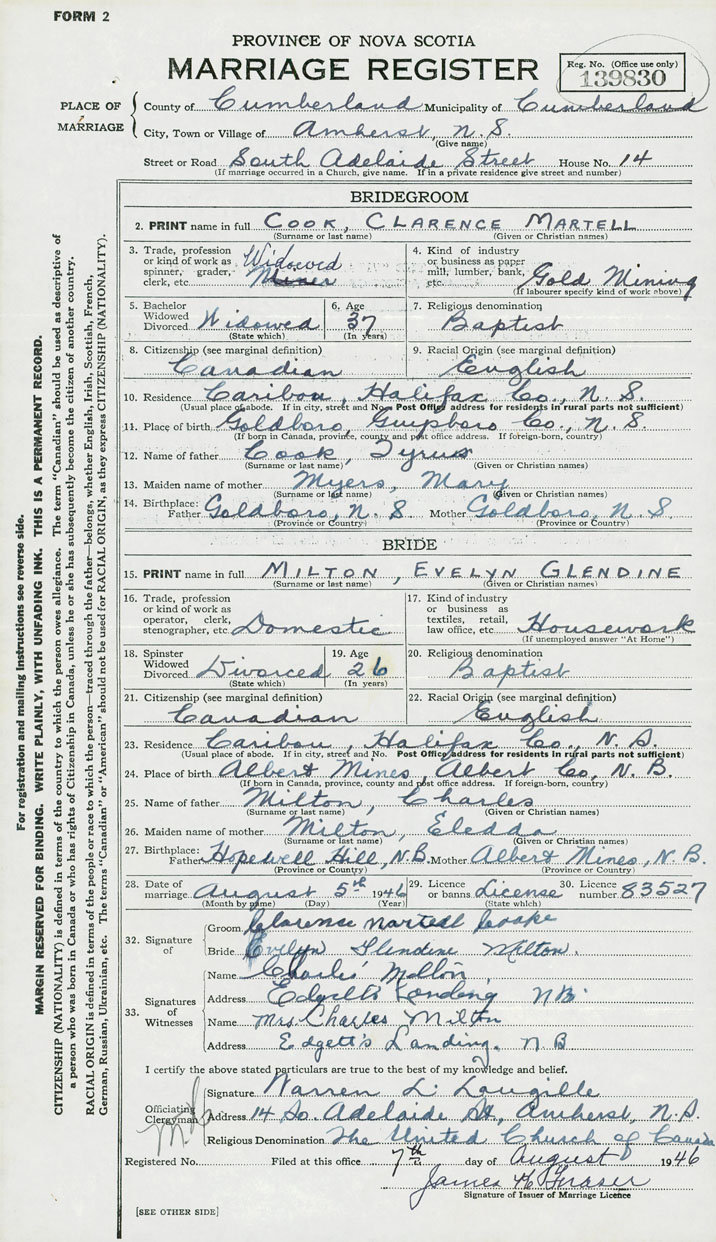 FORM 2
PROVINCE OF NOVA SCOTIA
MARRIAGE REGISTER
Reg. No. (Office use only)
139830
PLACE OF MARRIAGE
County of Cumberland Municipality of Cumberland
City, Town or Village of Amherst, N.S.
(Give name)
Street or Road South Adelaide Street House No. 14
(If marriage occurred in a Church, give name. If in a private residence give street and number)
BRIDEGROOM
2. PRINT name in full COOK, CLARENCE MARTELL
(Surname or last name) (Given or Christian names)
3. Trade, profession or kind of work as spinner, grader, clerk, etc. Widowed Miner
4. Kind of industry or business as paper mill, lumber, bank, etc. Gold Mining
(If labourer specify kind of work above)
5. Bachelor Widowed Divorced Widowed
(State which)
6. Age 37
(In years)
7. Religious denomination
Baptist
8. Citizenship (see marginal definition)
Canadian
9. Racial Origin (see marginal definition)
English
10. Residence Caribou, Halifax Co., N.S.
(Usual place of abode. If in city, street and No. Post Office address for residents in rural parts not sufficient)
11. Place of birth Goldboro, Guysboro Co., N.S.
(If born in Canada, province, county and post office address. If foreign-born, country)
12. Name of father Cook, Tyrus
(Surname or last name) (Given or Christian names)
13. Maiden name of mother Myers, Mary
(Surname or last name) (Given or Christian names)
14. Birthplace: Father Goldboro, N.S Mother Goldboro, N S
(Province or Country) (Province or Country)
BRIDE
15. PRINT name in full MILTON, EVELYN GLENDINE
(Surname or last name) (Given or Christian names)
16. Trade, profession or kind of work as operator, clerk, stenographer, etc. Domestic
17. Kind of industry or business as textiles, retail, law office, etc. Housework
(If unemployed answer "At Home")
18. Spinster Widowed Divorced Divorced
(State which)
19. Age 26
(In years)
20. Religious denomination
Baptist
21. Citizenship (see marginal definition)
Canadian
22. Racial Origin (see marginal definition)
English
23. Residence Caribou, Halifax Co., N.S.
(Usual place of abode. If in city, street and No. Post Office address for residents in rural parts not sufficient)
24. Place of birth Albert Mines, Albert Co, N.B.
(If born in Canada, province, county and post office address. If foreign-born, country)
25. Name of father Milton, Charles
(Surname or last name) (Given or Christian names)
26. Maiden name of mother Milton, Eledda
(Surname or last name) (Given or Christian names)
27. Birthplace: Father Hopewell Hill, N.B. Mother Albert Mines, N.B.
(Province or Country) (Province or Country)
28. Date of marriage August 5th 1946
(Month by name) (Day) (Year)
29. Licence or banns License
(State which)
30. Licence number 83527
32. Signature of
Groom Clarence Martell Cooke
Bride Evelyn Glendine Milton.
33. Signatures of Witnesses
Name Charles Milton
Address Edgetts Landing NB
Name Mrs Charles Milton
Address Edgett's Landing, N B
I certify the above stated particulars are true to the best of my knowledge and belief.
Officiating Clergyman
Signature Warren L. Langille
Address 14 So. Adelaide St, Amherst, N.S.
Religious Denomination The United Church of Canada
Registered No. Filed at this office 7th day of August 1946
James H Fraser
Signature of Issuer of Marriage Licence
[SEE OTHER SIDE]
For registration and mailing instructions see reverse side.
MARGIN RESERVED FOR BINDING. WRITE PLAINLY, WITH UNFADING INK. THIS IS A PERMANENT RECORD.
CITIZENSHIP (NATIONALITY) is defined in terms of the country to which the person owes allegiance. The term "Canadian" should be used as descriptive of
a person who was born in Canada or who has rights of Citizenship in Canada, unless he or she has subsequently become the citizen of another country.
RACIAL ORIGIN is defined in terms of the people or race to which the person—traced through the father—belongs, whether English, Irish, Scottish, French,
German, Russian, Ukrainian, etc. The terms "Canadian" or "American" should not be used for RACIAL ORIGIN, as they express CITIZENSHIP (NATIONALITY).